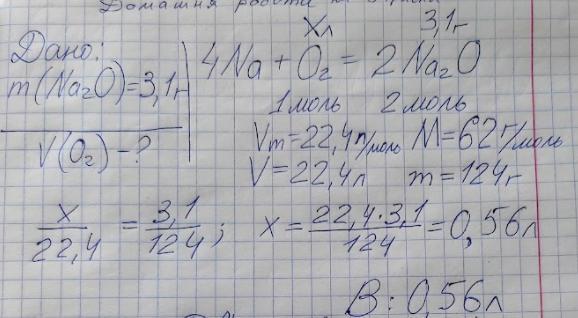 Домашня робота
x л 3,1 г
Дано:
m(Na₂O)=3,1 г
V(O₂) - ?
4Na + O₂ = 2Na₂O
1 моль 2 моль
Vm = 22,4 л/моль M = 62 г/моль
V = 22,4 л m = 124 г
x/22,4 = 3,1/124 ; x = 22,4·3,1/124 = 0,56 л
В: 0,56 л